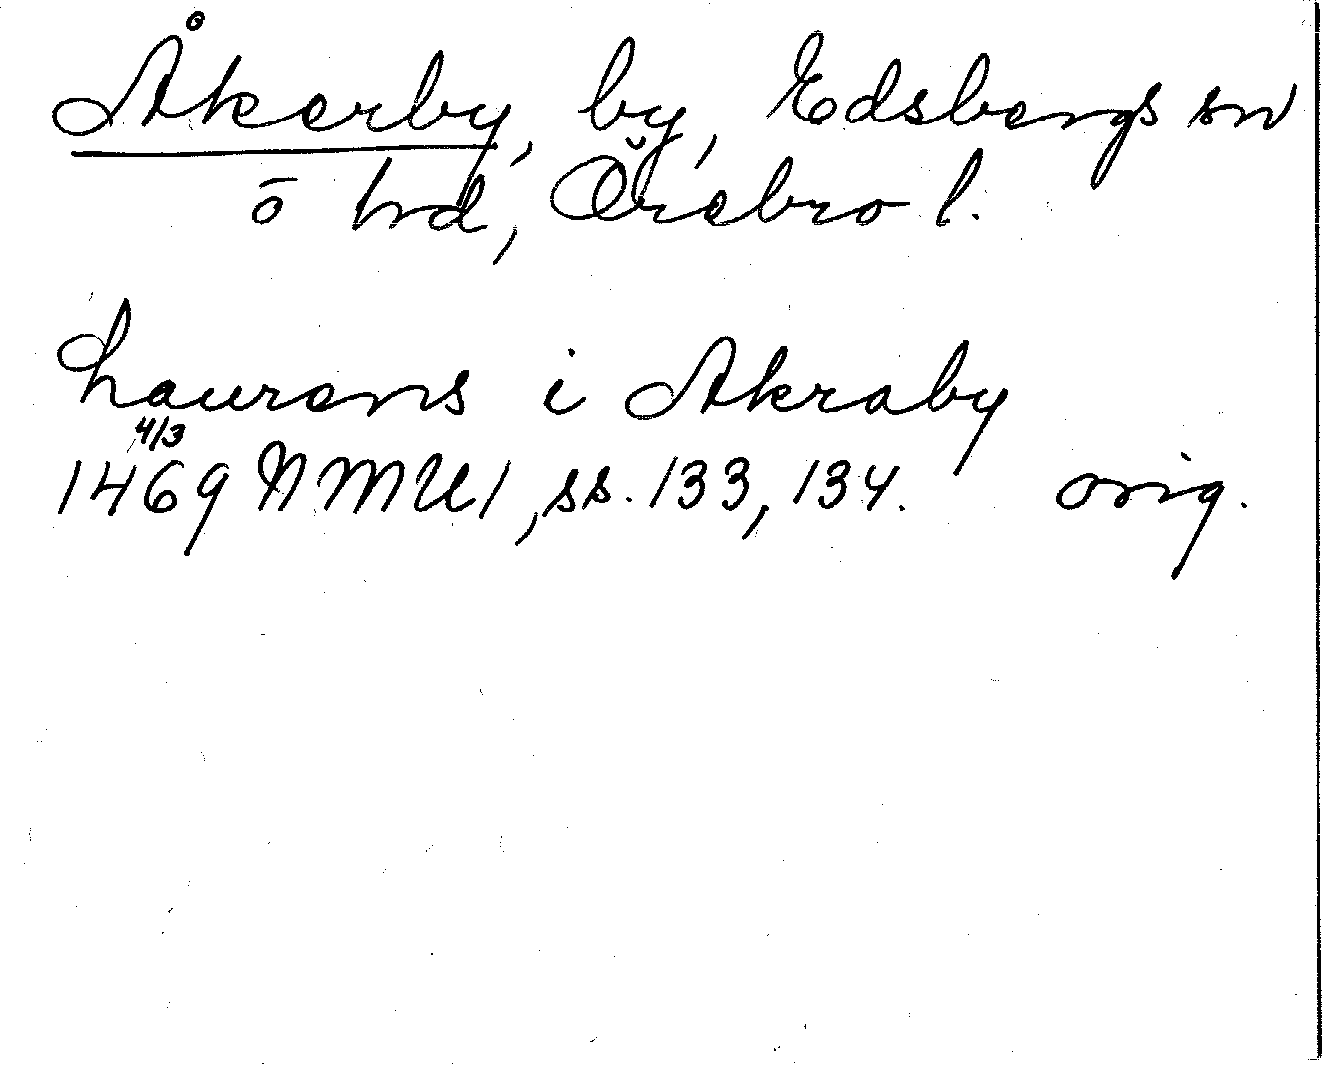 Åkerby, by, Edsbergs sn
ō hd, Örebro l.
Laurens i Akraby
4/3
1469 NMU1, ss. 133, 134. orig.